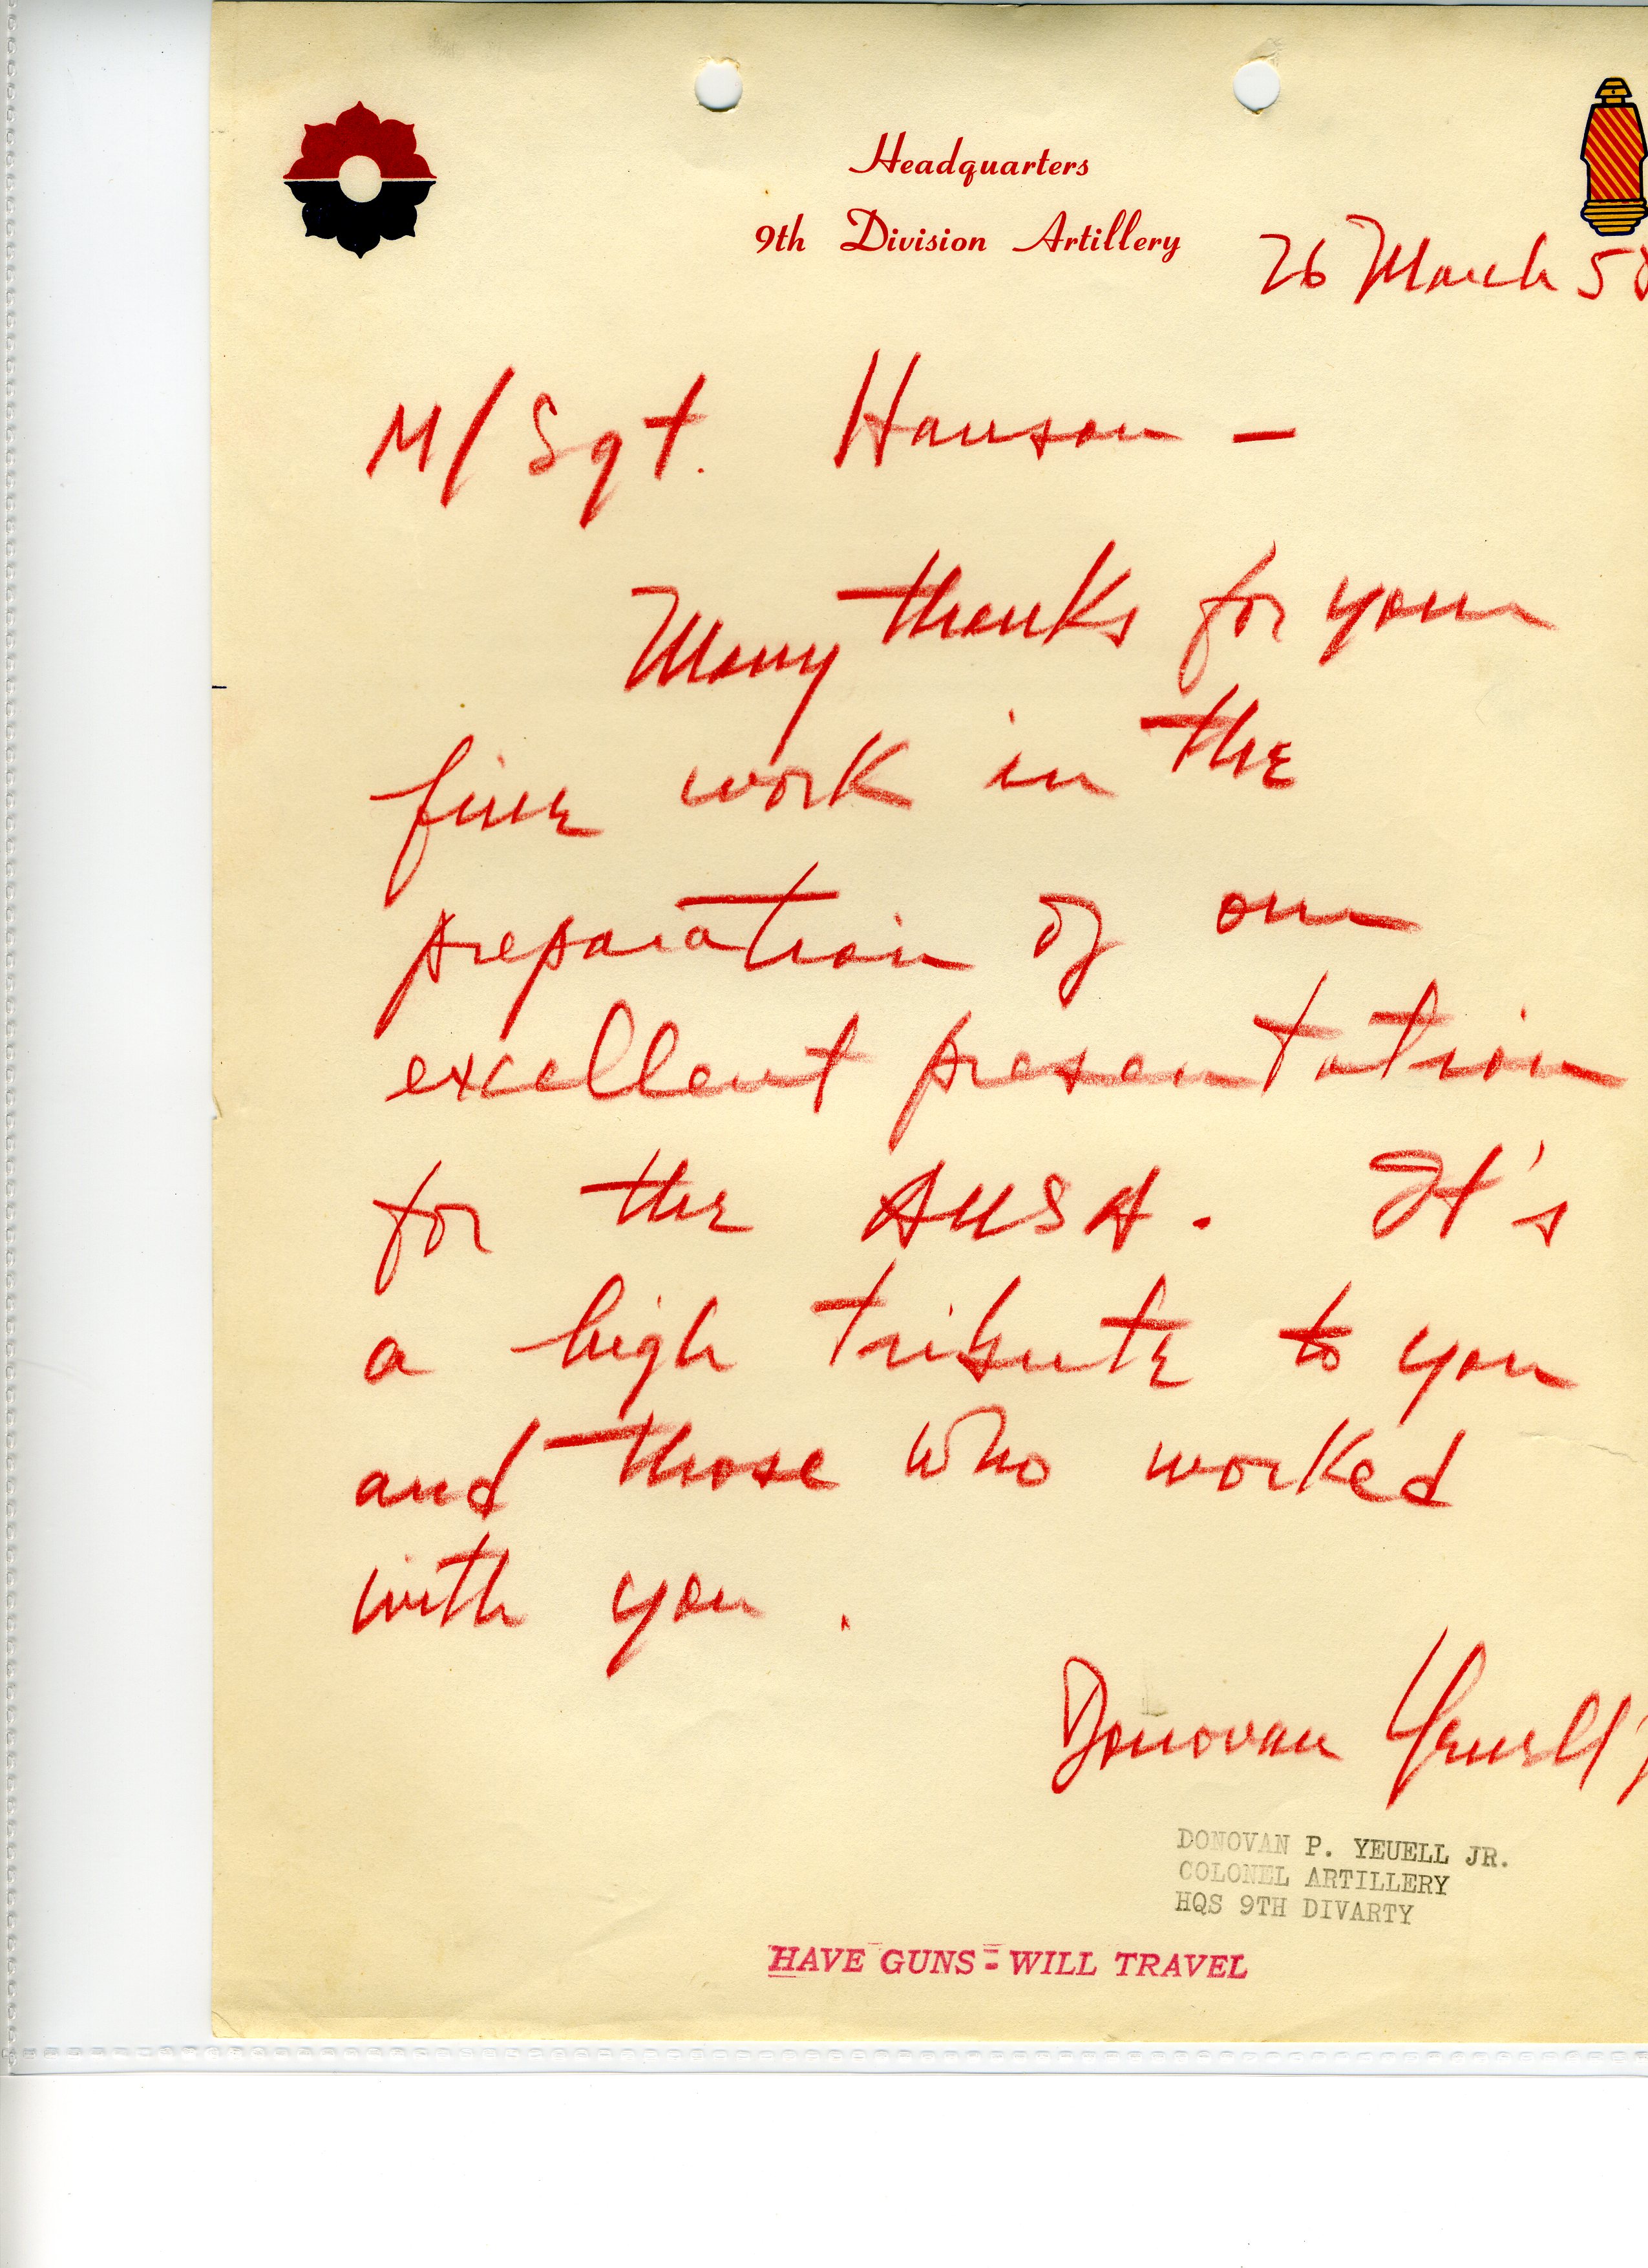 Headquarters
9th Division Artillery
26 March 58
M/Sgt. Hanson —
Many thanks for your
fine work in the
preparation of our
excellent presentation
for the AUSA. It's
a high tribute to you
and those who worked
with you.
Donovan Yeuell Jr
DONOVAN P. YEUELL JR.
COLONEL ARTILLERY
HQS 9TH DIVARTY
HAVE GUNS - WILL TRAVEL